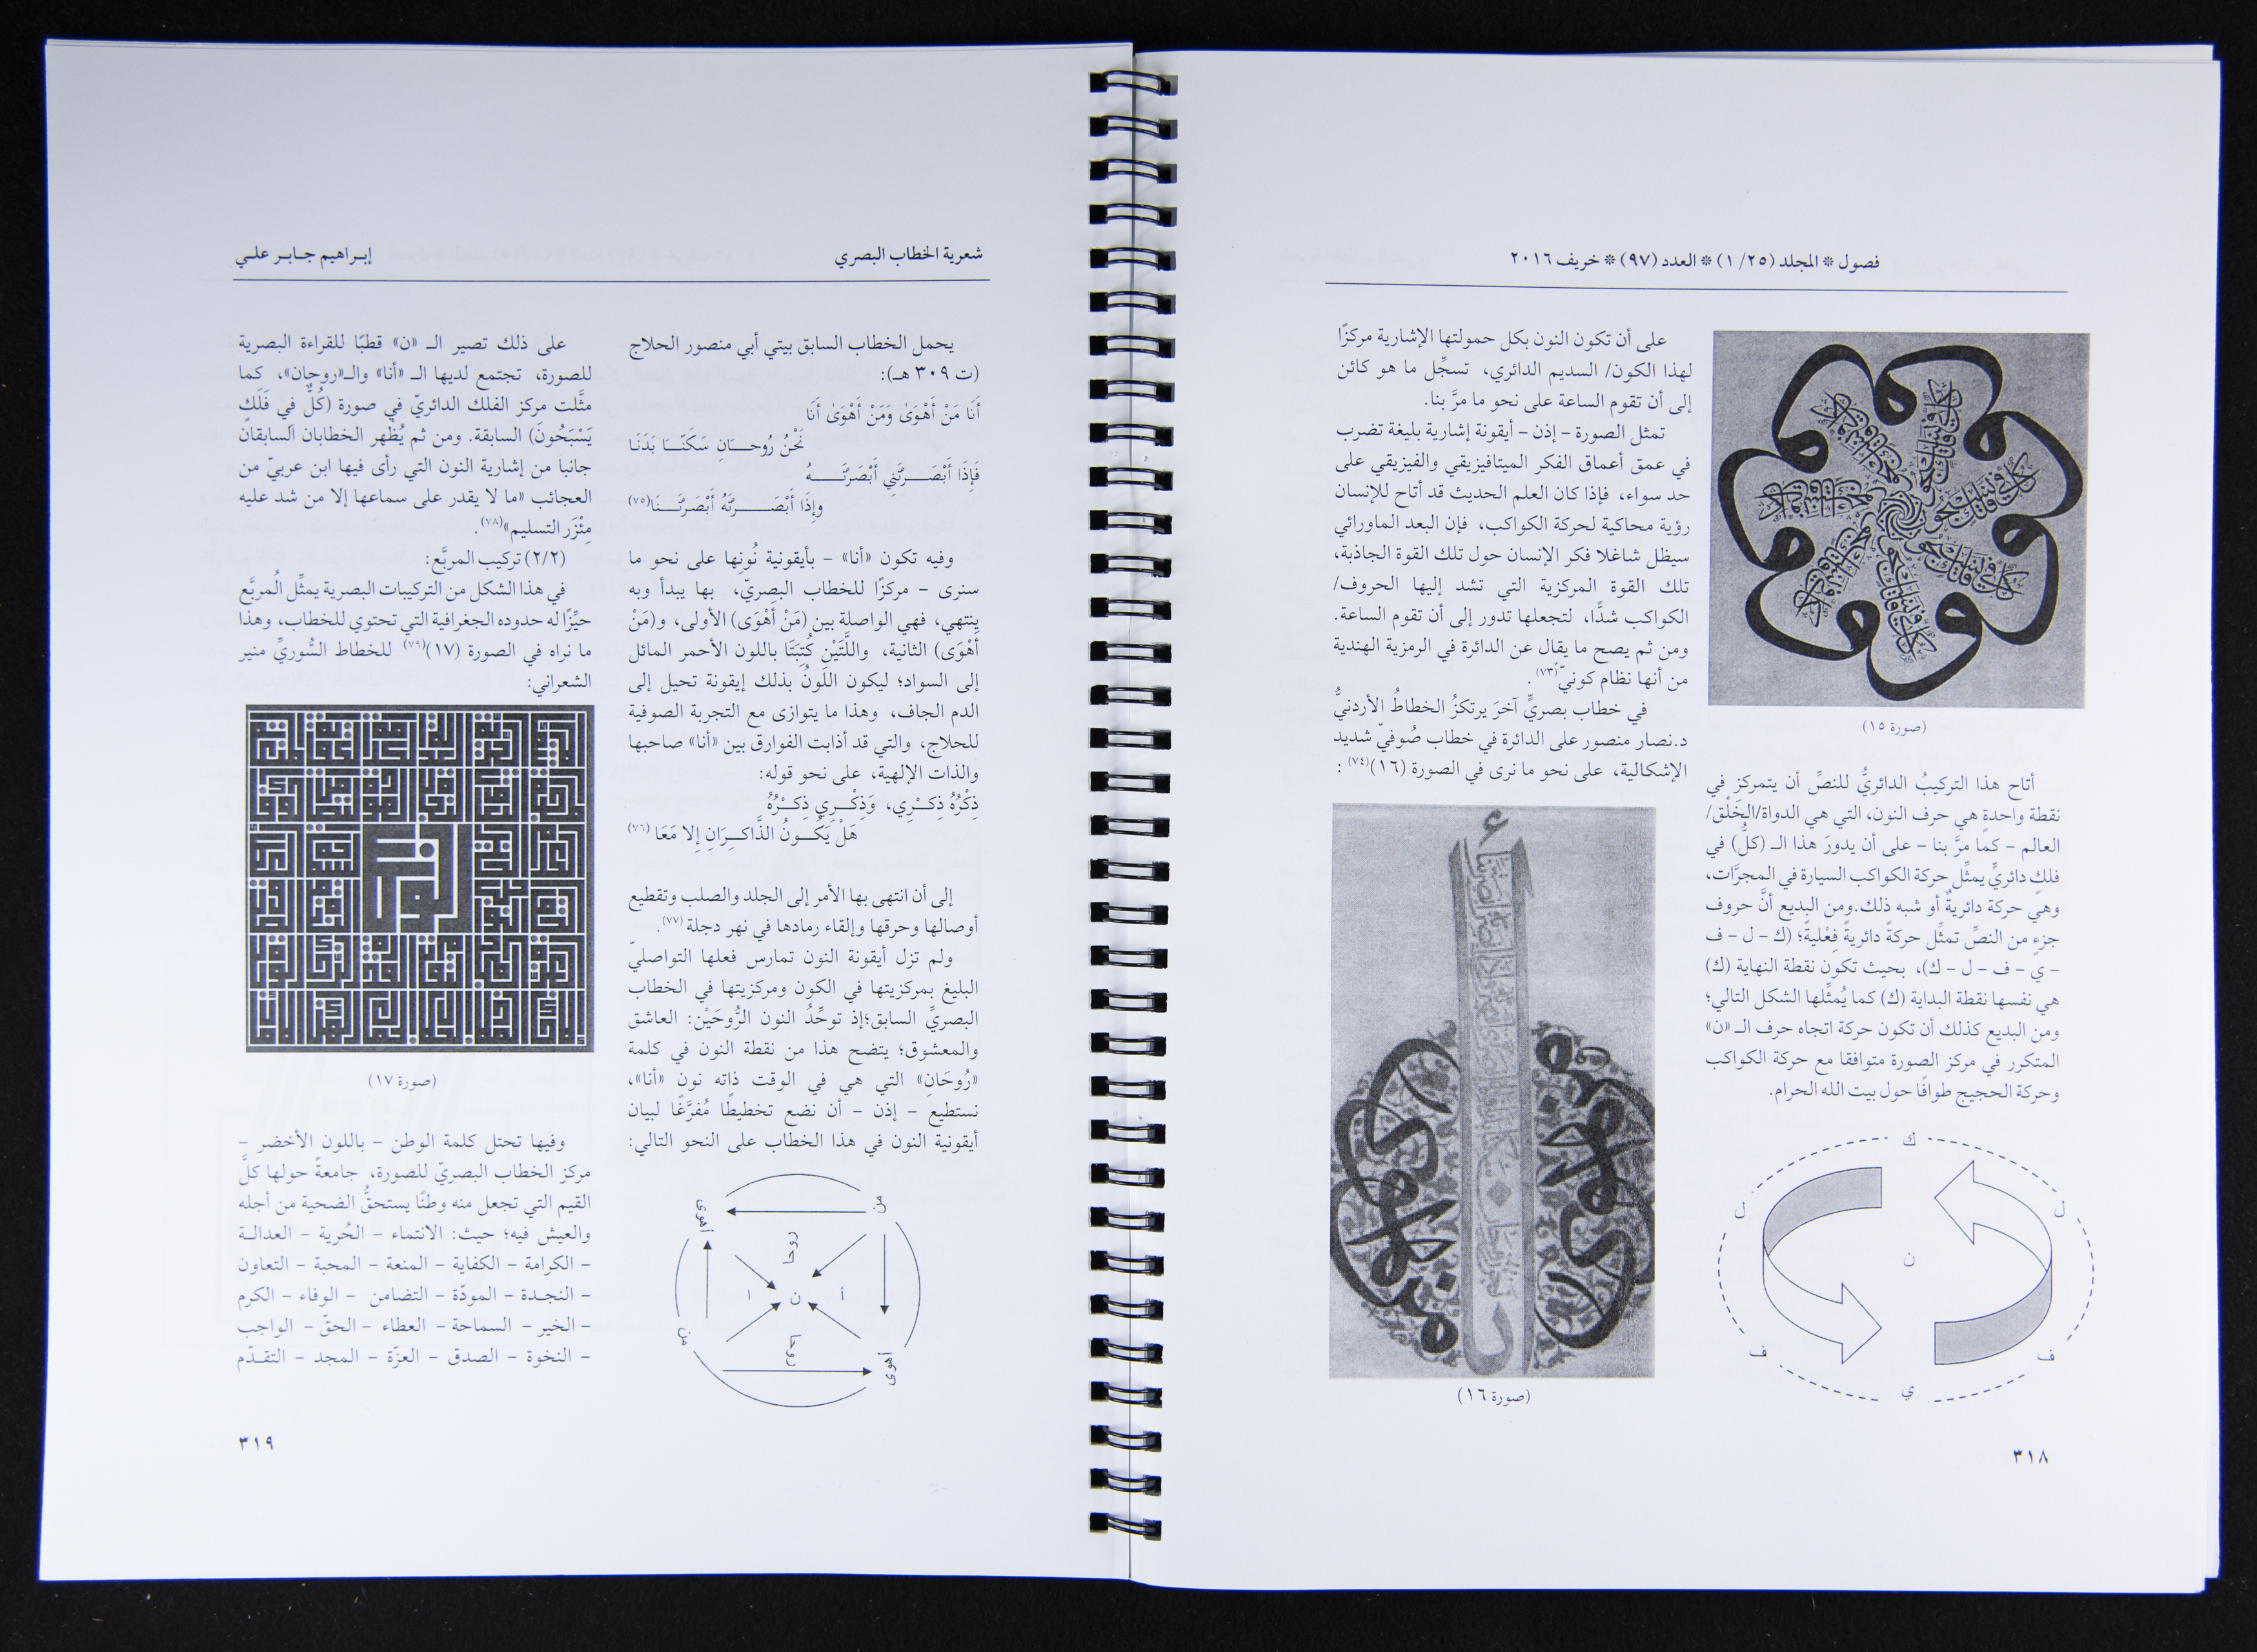 فصول * المجلد (٢٥/ ١) * العدد (٩٧) * خريف ٢٠١٦
(صورة ١٥)
أتاح هذا التركيبُ الدائريُّ للنصِّ أن يتمركز في
نقطة واحدةٍ هي حرف النون، التي هي الدواة/الخَلْق/
العالم – كما مرَّ بنا – على أن يدورَ هذا الـ (كلُّ) في
فلكٍ دائريٍّ يمثِّل حركة الكواكب السيارة في المجرَّات،
وهي حركة دائريةٌ أو شبه ذلك.ومن البديع أنَّ حروف
جزءٍ من النصِّ تمثِّل حركةً دائريةً فِعْليةً؛ (ك – ل – ف
– ي – ف – ل – ك)، بحيث تكون نقطة النهاية (ك)
هي نفسها نقطة البداية (ك) كما يُمثِّلها الشكل التالي؛
ومن البديع كذلك أن تكون حركة اتجاه حرف الـ «ن»
المتكرر في مركز الصورة متوافقا مع حركة الكواكب
وحركة الحجيج طوافًا حول بيت الله الحرام.
ك
ل
ل
ن
ف
ف
ي
على أن تكون النون بكل حمولتها الإشارية مركزًا
لهذا الكون/ السديم الدائري، تسجِّل ما هو كائن
إلى أن تقوم الساعة على نحو ما مرَّ بنا.
تمثل الصورة – إذن – أيقونة إشارية بليغة تضرب
في عمق أعماق الفكر الميتافيزيقي والفيزيقي على
حد سواء، فإذا كان العلم الحديث قد أتاح للإنسان
رؤية محاكية لحركة الكواكب، فإن البعد الماورائي
سيظل شاغلا فكر الإنسان حول تلك القوة الجاذبة،
تلك القوة المركزية التي تشد إليها الحروف/
الكواكب شدًّا، لتجعلها تدور إلى أن تقوم الساعة.
ومن ثم يصح ما يقال عن الدائرة في الرمزية الهندية
من أنها نظام كونيّ(٧٣).
في خطاب بصريٍّ آخرَ يرتكزُ الخطاطُ الأردنيُّ
د.نصار منصور على الدائرة في خطاب صُوفيّ شديد
الإشكالية، على نحو ما نرى في الصورة (١٦)(٧٤):
(صورة ١٦)
٣١٨
شعرية الخطاب البصري
إبـراهيم جـابـر علـي
يحمل الخطاب السابق بيتي أبي منصور الحلاج
(ت ٣٠٩ هـ):
أَنَا مَنْ أَهْوَىٰ وَمَنْ أَهْوَىٰ أَنَا
نَحْنُ رُوحـــَـانِ سَكَنَّــا بَدَنَـا
فَإِذَا أَبْصَـــــرْتَني أَبْصَرْتَـــــهُ
وإِذَا أَبْصَـــــرْتَهُ أَبْصَرْتَــــنَا(٧٥)
وفيه تكون «أنا» – بأيقونية نُونِها على نحو ما
سنرى – مركزًا للخطاب البصريّ، بها يبدأ وبه
ينتهي، فهي الواصلة بين (مَنْ أَهْوَى) الأولى، و(مَنْ
أَهْوَى) الثانية، واللَّتَيْنِ كُتِبَتَا باللون الأحمر المائل
إلى السواد؛ ليكون اللَونُ بذلك إيقونة تحيل إلى
الدم الجاف، وهذا ما يتوازى مع التجربة الصوفية
للحلاج، والتي قد أذابت الفوارق بين «أنا» صاحبها
والذات الإلهية، على نحو قوله:
ذِكْرُهُ ذِكـــْرِي، وَذِكـــْرِي ذِكــْرُهُ
هَلْ يَكُـــونُ الذَّاكــِرَانِ إلا مَعَا (٧٦)
إلى أن انتهى بها الأمر إلى الجلد والصلب وتقطيع
أوصالها وحرقها وإلقاء رمادها في نهر دجلة (٧٧).
ولم تزل أيقونة النون تمارس فعلها التواصليّ
البليغ بمركزيتها في الكون ومركزيتها في الخطاب
البصريِّ السابق؛إذ توحِّدُ النون الرُّوحَيْن: العاشق
والمعشوق؛ يتضح هذا من نقطة النون في كلمة
«رُوحَانِ» التي هي في الوقت ذاته نون «أنا»،
نستطيع – إذن – أن نضع تخطيطًا مُفرَّغًا لبيان
أيقونية النون في هذا الخطاب على النحو التالي:
من
أهوى
روحا
أ
ن
ا
روحا
من
أهوى
على ذلك تصير الـ «ن» قطبًا للقراءة البصرية
للصورة، تجتمع لديها الـ «أنا» والـ«روحان»، كما
مثَّلت مركز الفلك الدائريّ في صورة (كُلٌّ فِي فَلَكٍ
يَسْبَحُونَ) السابقة. ومن ثم يُظْهر الخطابان السابقان
جانبا من إشارية النون التي رأى فيها ابن عربيّ من
العجائب «ما لا يقدر على سماعها إلا من شد عليه
مِئْزَر التسليم»(٧٨).
(٢/٢) تركيب المربَّع:
في هذا الشكل من التركيبات البصرية يمثِّل المُربَّع
حيِّزًا له حدوده الجغرافية التي تحتوي للخطاب، وهذا
ما نراه في الصورة (١٧)(٧٩) للخطاط السُّوريِّ منير
الشعراني:
الوطن
(صورة ١٧)
وفيها تحتل كلمة الوطن – باللون الأخضر –
مركز الخطاب البصريّ للصورة، جامعةً حولها كلَّ
القيم التي تجعل منه وطنًا يستحقُّ الضحية من أجله
والعيش فيه؛ حيث: الانتماء – الحُرية – العدالـة
– الكرامة – الكفاية – المنعة – المحبة – التعاون
– النجـدة – المودّة – التضامن – الوفاء – الكرم
– الخير – السماحة – العطاء – الحقّ – الواجب
– النخوة – الصدق – العزّة – المجد – التقـدّم
٣١٩